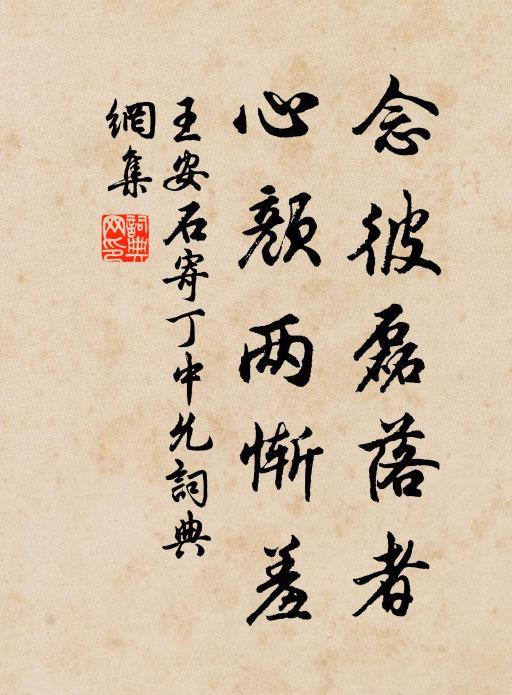 念彼磊落者
心颜两惭羞
王安石寄丁中允詞典
網集
詞典網印